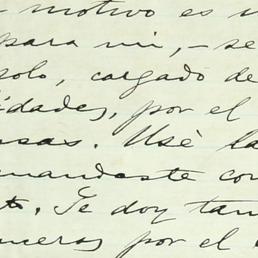 motivo es u
para mi, - se
solo, cargado de
idades, por el
nsas. Usé la
mandaste con
Te doy tam
neras por el